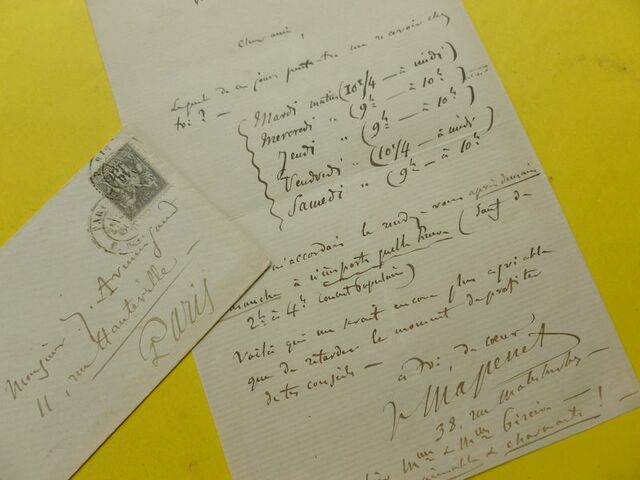 Cher ami,
Lequel de ces jours peut-être me recevoir chez
toi? —
Mardi matin (10h 1/4 — à midi)
Mercredi " (9h — à 10h)
Jeudi " (9h — à 10h)
Vendredi " (10h 1/4 — à midi)
Samedi " (9h — à 10h)
m'accordais le rendez-vous après demain
manche à n'importe quelle heure (sauf de
2h à 4h Concert Populaire)
Voilà qui me serait encore plus agréable
que de retarder le moment de profiter
de tes conseils —
à toi, de cœur,
J. Massenet
38, rue Malesherbes —
Mme & Melles
aimable & charmante!
Monsieur J. Armingaud
11, rue Hauteville —
Paris